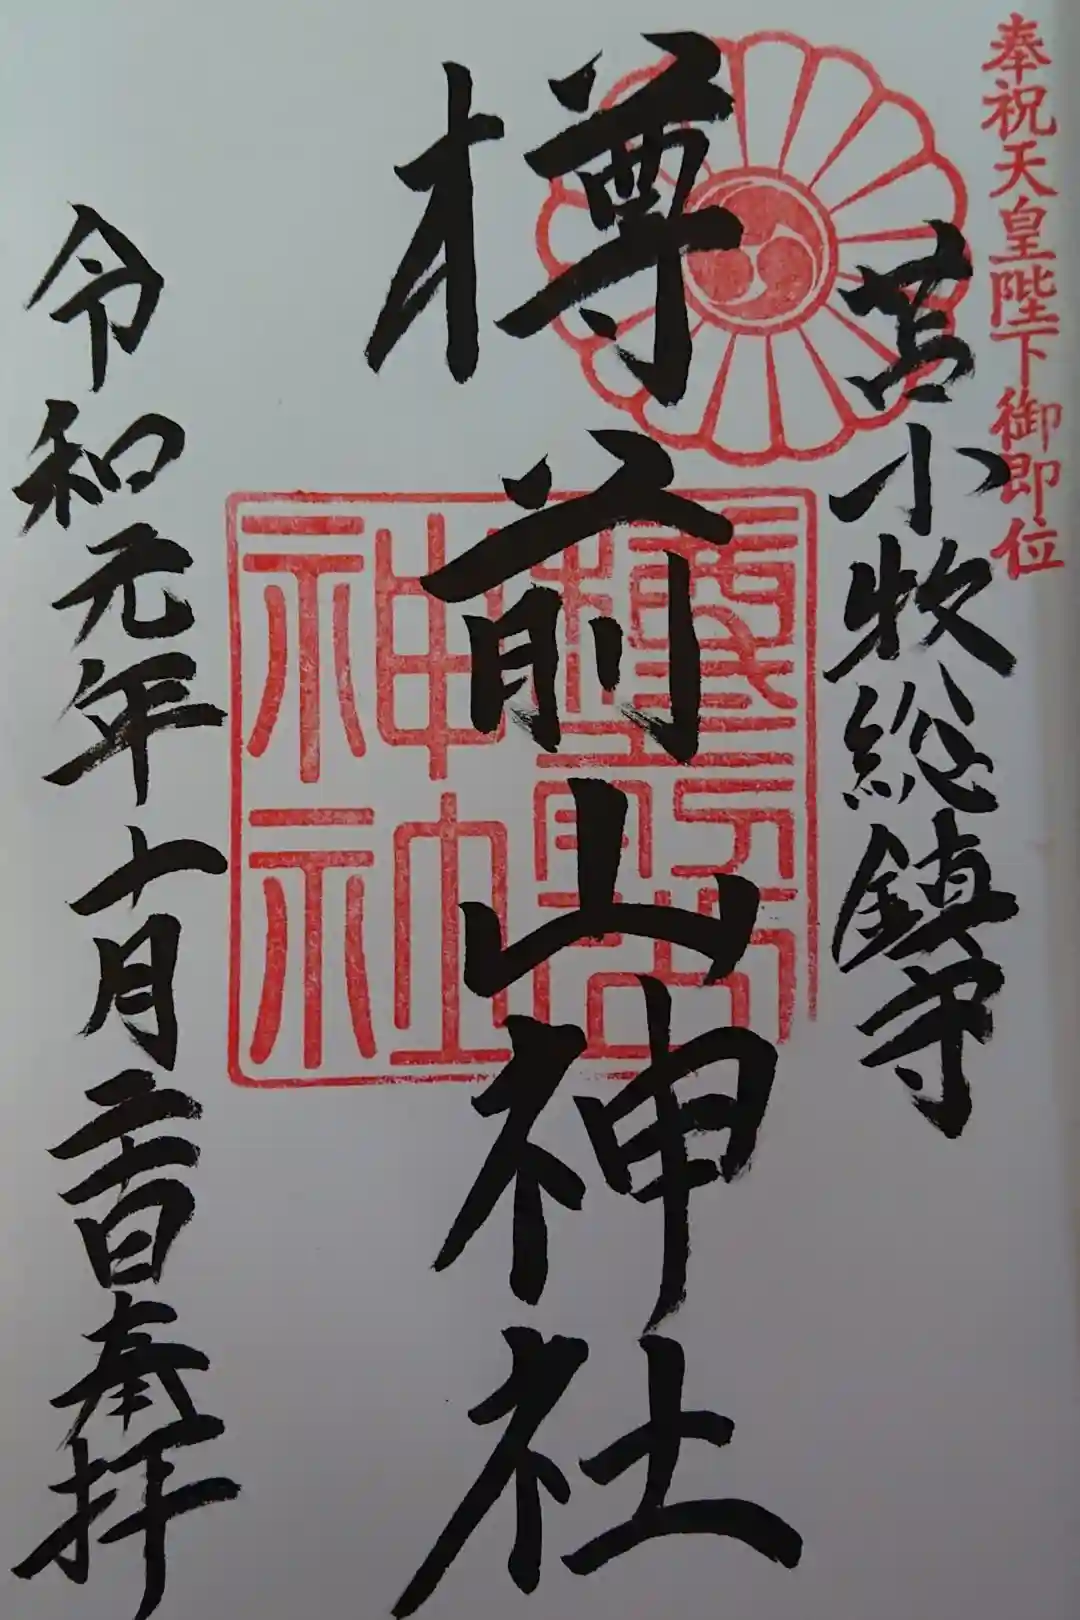 奉祝天皇陛下御即位
苫小牧総鎮守
樽前山神社
神社
令和元年十月二十日奉拝